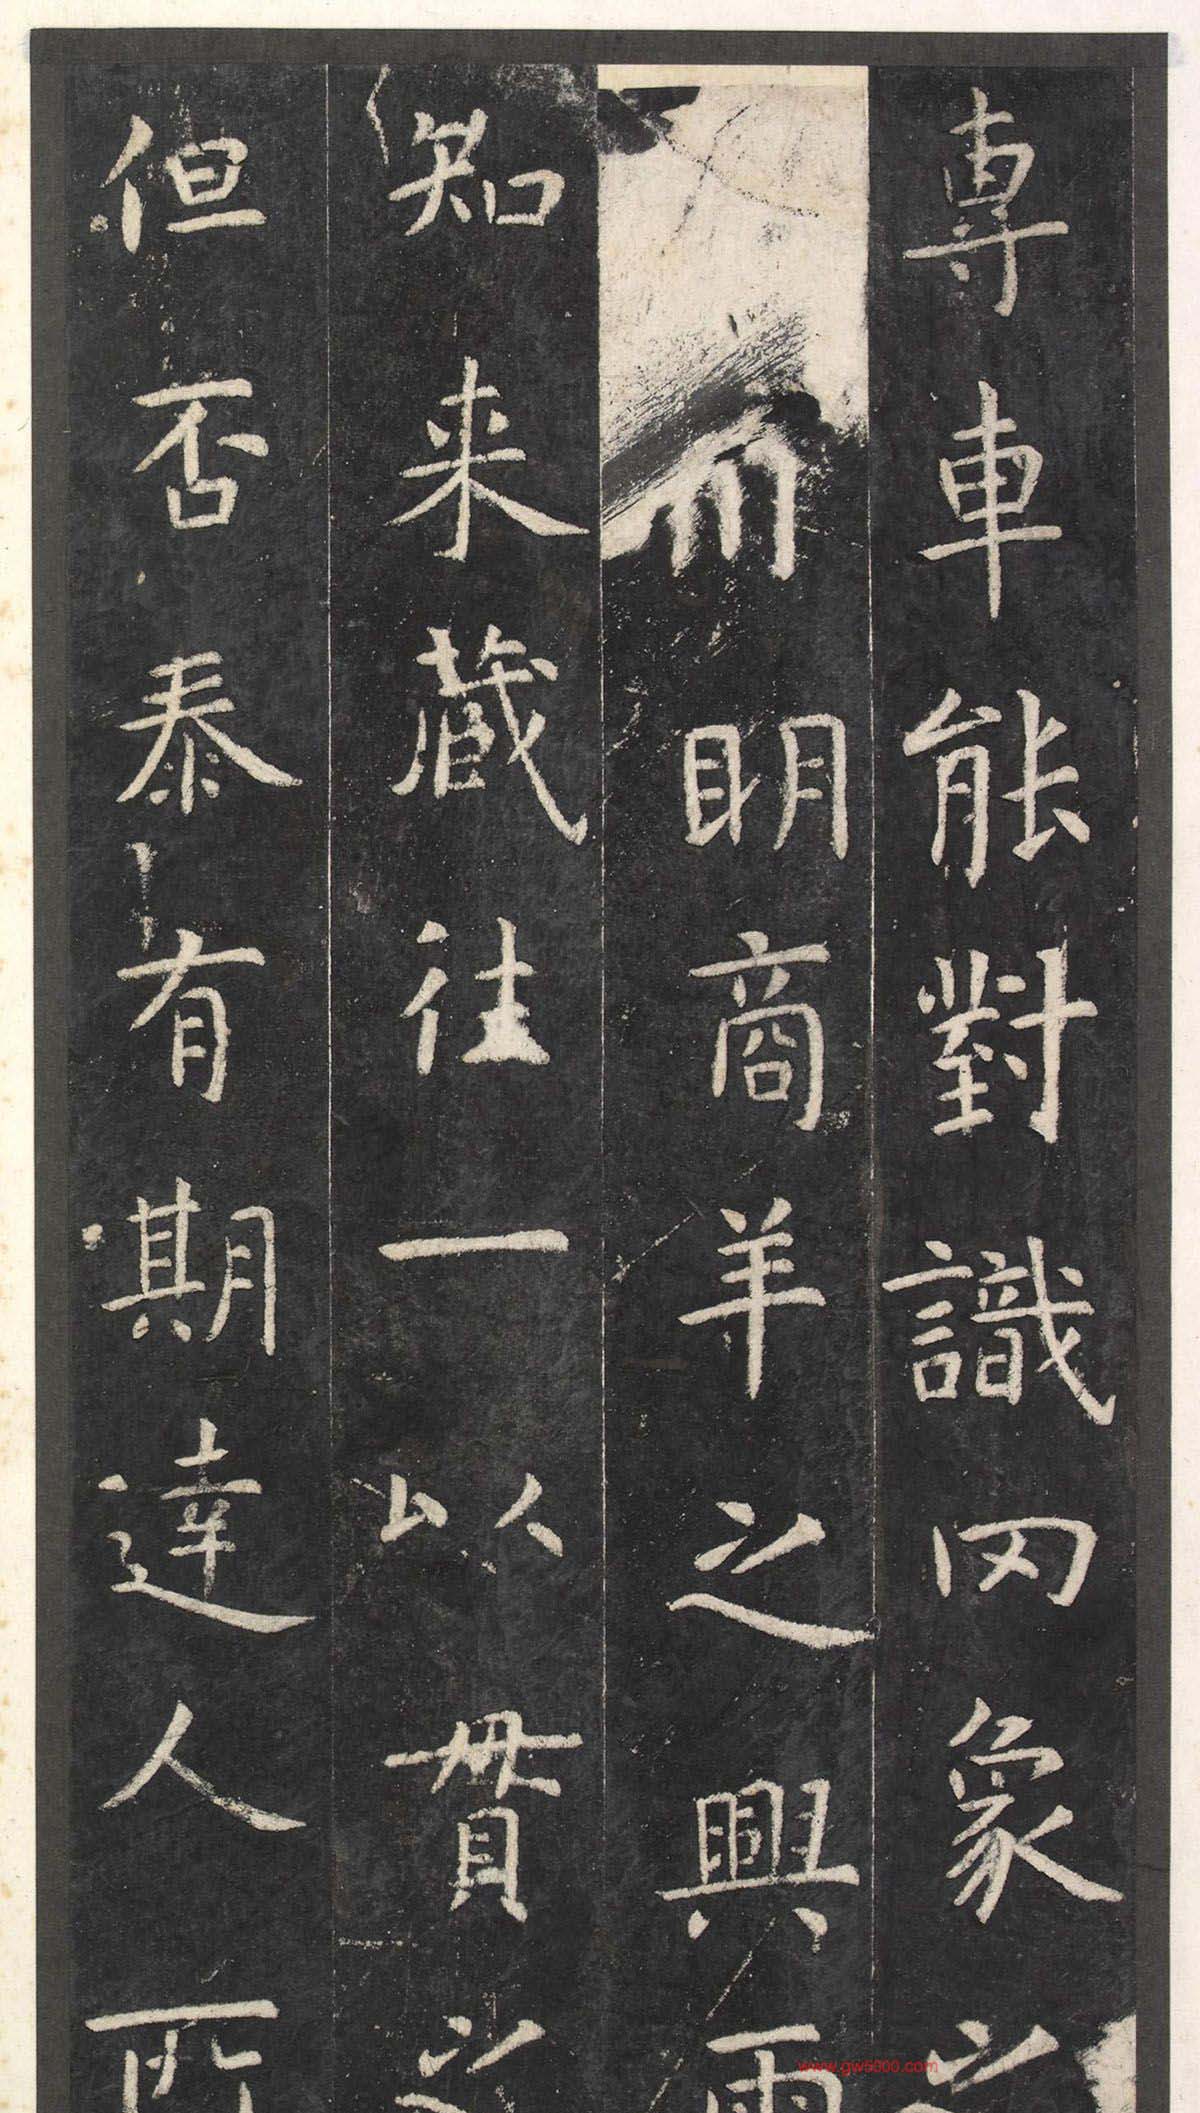 專車能對識罔象之
而明商羊之興雨
知来藏往一以貫之
但否泰有期達人所
www.gw5000.com